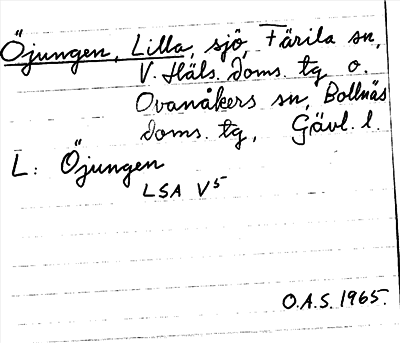 Öjungen, Lilla, sjö, Färila sn,
V. Häls. doms. tg o.
Ovanåkers sn, Bollnäs
doms. tg, Gävl. l.
L: Öjungen
LSA V5
O.A.S. 1965.